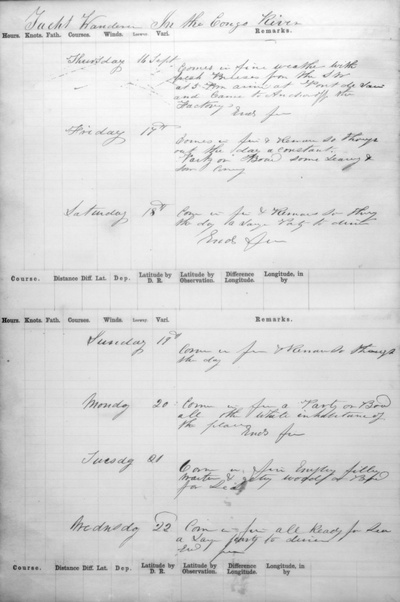 Yacht Wanderer In the Congo River
Hours. Knots. Fath. Courses. Winds. Leeway. Vari. Remarks.
Thursday 16 Sept Comes in fine weather with
fresh Breeses from the SW
at 5 Pm at Point de
and Came to Anchor off the
Factory
Ends fin
Friday 17th
Comes in fin & Remans So through
out the day a constant
Party on Board some Leavg &
Som
Saturday 18th Com in fin & Remans So throu
the day a Large Party to dinner
Ends fin
Course. Distance Diff. Lat. Dep. Latitude by D. R. Latitude by Observation. Difference Longitude. Longitude, in by
Hours. Knots. Fath. Courses. Winds. Leeway. Vari. Remarks.
Sunday 19th
Coms in fin & Remans So through
the day
Monday 20 Coms in fin a Party on Bord
all the white inhabitance of
the place
Ends fin
Tuesdy 21
Coms in fin Empley filling
water & wood on Bord
for Sea
Wednsdy 22 Coms in fin all Ready for Sea
a Larg party to dinner
End fin
Course. Distance Diff. Lat. Dep. Latitude by D. R. Latitude by Observation. Difference Longitude. Longitude, in by